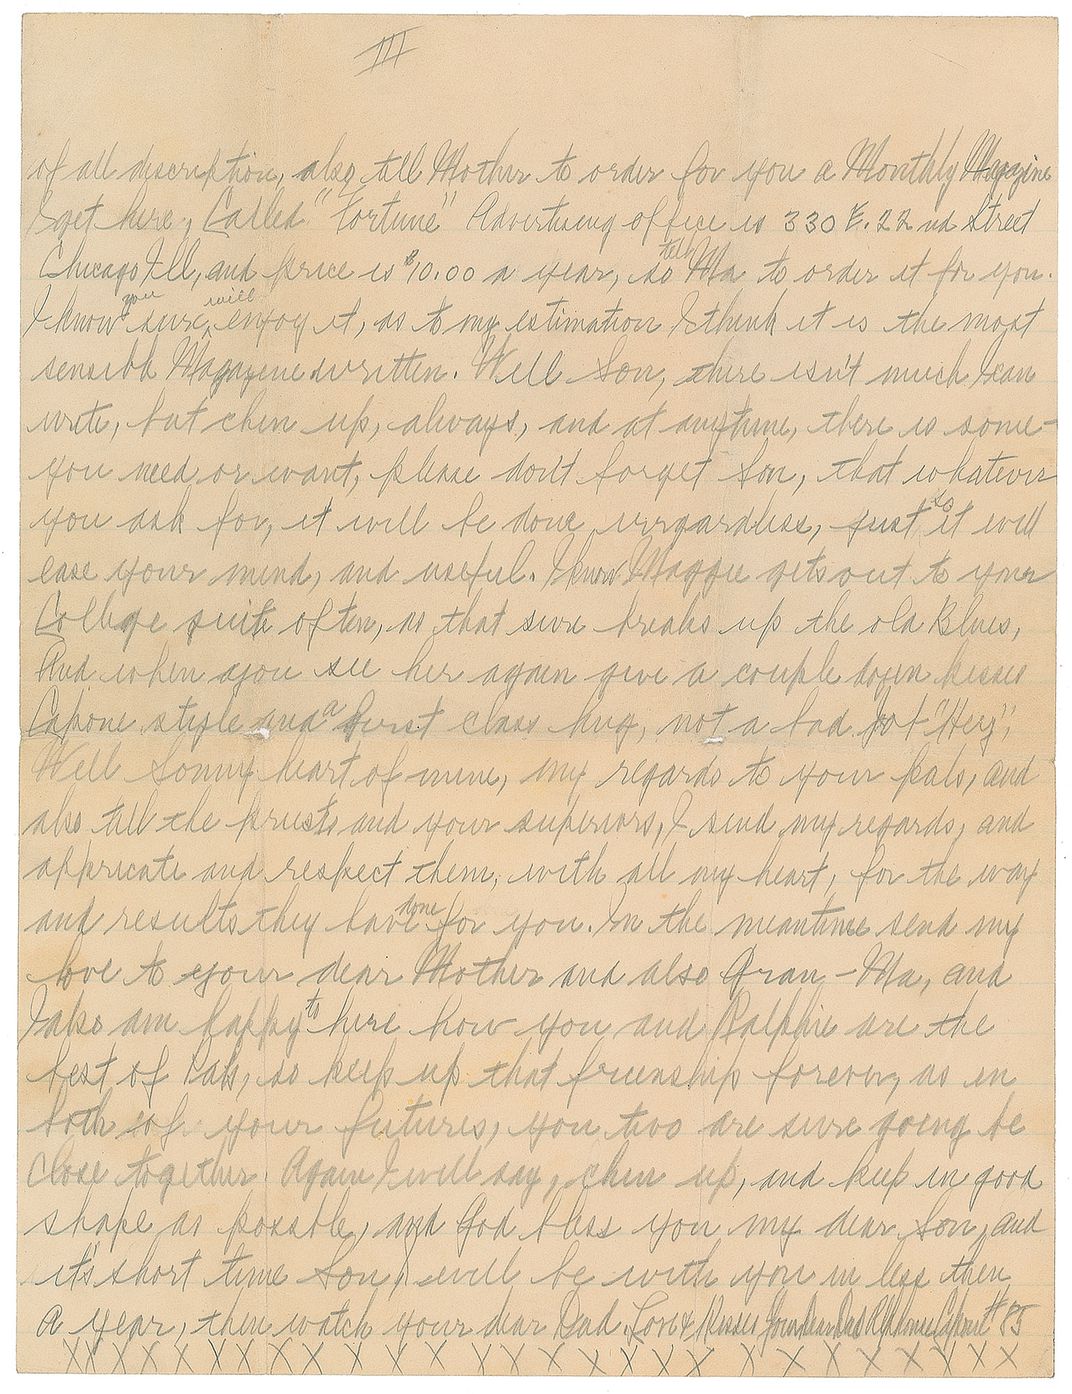 III
of all description, also tell Mother to order for you a Monthly Magazine
I get here, Called "Fortune" Advertising office is 330 E. 22nd Street
Chicago Ill, and price is $10.00 a year, so tell Ma to order it for you.
I know you sure will enjoy it, as to my estimation I think it is the most
sensible Magazine written. Well Son, there isn't much I can
write, but chin up, always, and at anytime, there is some-
you need or want, please don't forget Son, that whatever
you ask for, it will be done irregardless, just so it will
ease your mind, and useful. I know Maggie gets out to your
College quite often, as that sure breaks up the old Blues,
And when you see her again give a couple dozen kisses
Capone style and a first class hug, not a bad job "Hey",
Well Sonny heart of mine, my regards to your pals, and
also tell the priests and your superiors, I send my regards, and
appricate and respect them, with all my heart, for the way
and results they have done for you. In the meantime send my
love to your dear Mother and also Gran-Ma, and
I also am happy to here how you and Ralphie are the
best of Pals, so keep up that frienship forever, as in
both of your futures, you two are sure going be
Close together. Again I will say, chin up, and keep in good
shape as possible, and God bless you my dear Son, and
it's short time Son, I will be with you in less then
a year, then watch your dear Dad. Love & Kisses Your Dear Dad Alphonse Capone #85
X X X X X X X X X X X X X X X X X X X X X X X X